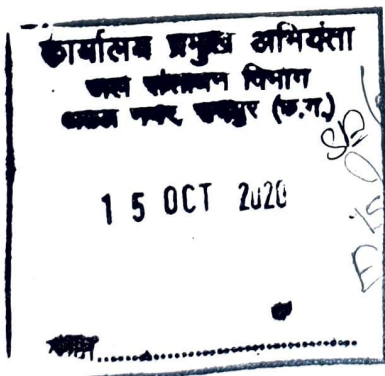 कार्यालय प्रमुख अभियंता
जल संसाधन विभाग
अटल नगर, रायपुर (छ.ग.)
15 OCT 2020